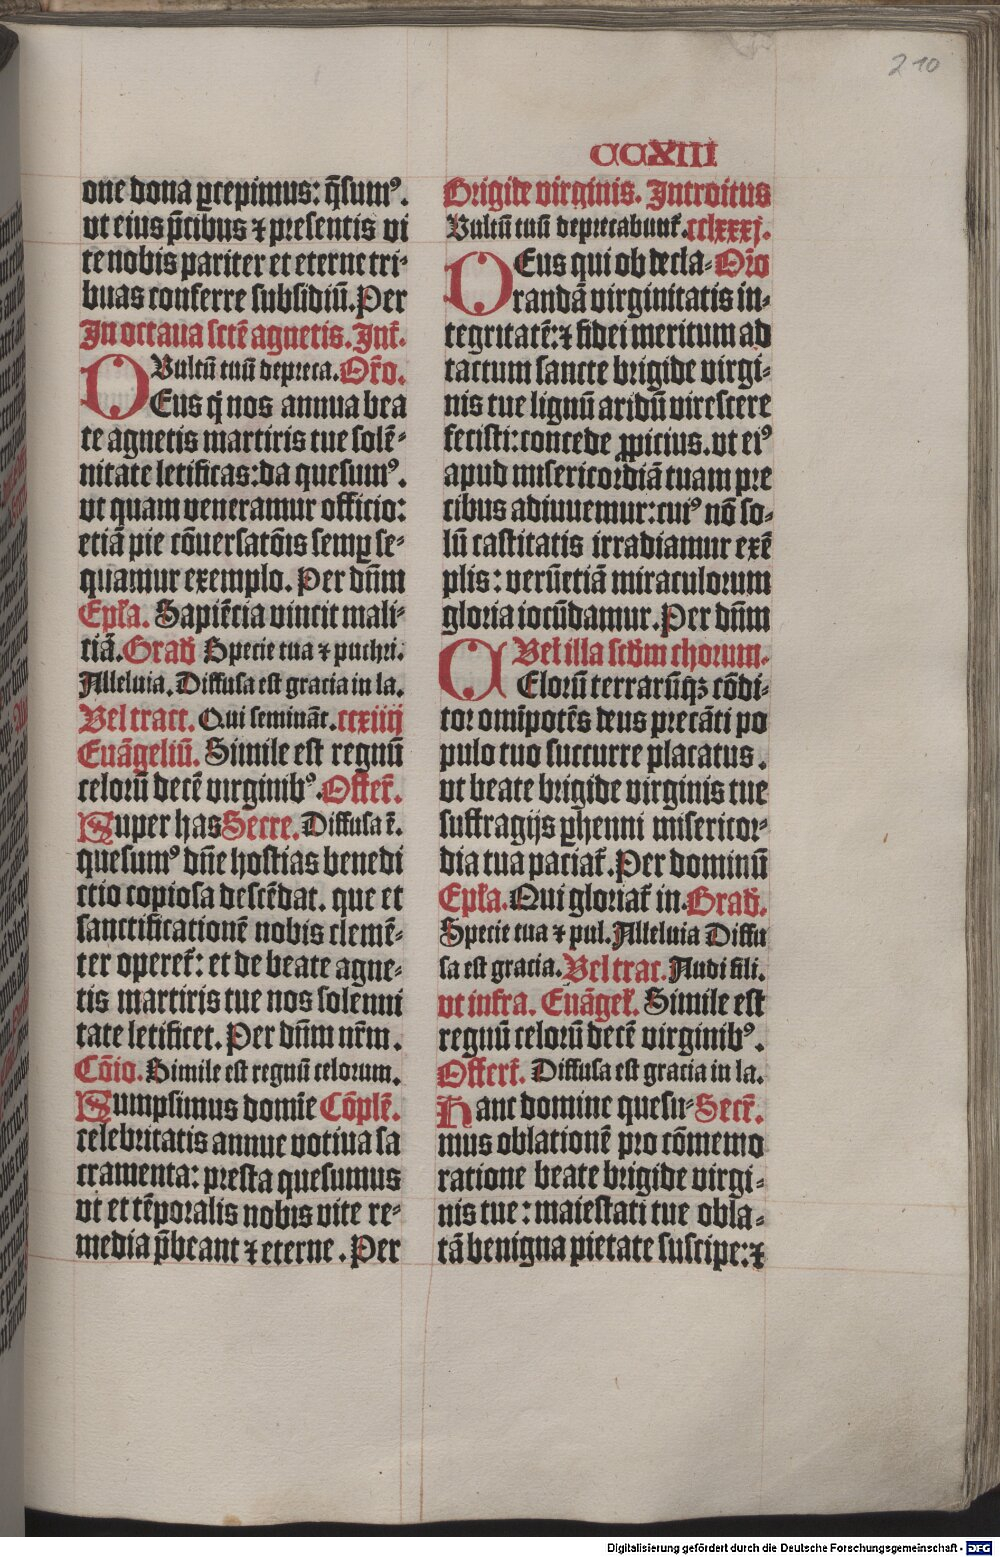 210
CCXIII
one dona ꝑcepimus: q̄sumꝰ.
vt eius p̄cibus ⁊ presentis vi
te nobis pariter et eterne tri⸗
buas conferre subsidiū. Per
In octaua scte̅ agnetis. Int̄.
Vultū tuū depreca. Or̄o.
DEus q̇ nos annua bea
te agnetis martiris tue solē⸗
nitate letificas: da quesumꝰ.
vt quam veneramur officio:
etiā pie cōuersatōis semꝑ se⸗
quamur exemplo. Per dn̄m
Ep̄la. Sapiēcia vincit mali⸗
tiā. Grad̄ Specie tua ⁊ puchri.
Alleluia. Diffusa est gracia in la.
Vel tract. Qui semināt. ccxiiij
Euāgeliū. Simile est regnū
celorū decē virginibꝰ. Offer̄.
Super has Secre. Diffusa ē.
quesumꝰ dn̄e hostias benedi
ctio copiosa descēdat. que et
sanctificationē nobis clemē⸗
ter operet̄: et de beate agne⸗
tis martiris tue nos solenni
tate letificet. Per dn̄m nr̄m.
Cōio. Simile est regnū celorum.
Sumpsimus domīe Cōplē.
celebritatis annue votiua sa
cramenta: presta quesumus
vt et tēporalis nobis vite re⸗
media p̄beant ⁊ eterne. Per
Brigide virginis. Introitus
Vultū tuū deprecabunt̄. cclxxxj.
DEus qui ob decla⸗ Or̄o
randā virginitatis in⸗
tegritatē: ⁊ fidei meritum ad
tactum sancte brigide virgi⸗
nis tue lignū aridū virescere
fecisti: concede ꝓpicius. vt eiꝰ
apud misericordiā tuam pre
cibus adiuuemur: cuiꝰ nō so⸗
lū castitatis irradiamur exē
plis: verūetiā miraculorum
gloria iocūdamur. Per dn̄m
Vel illa scd̄m chorum.
CElorū terrarūqꝫ cōdi⸗
tor omīpotēs deus precāti po
pulo tuo succurre placatus.
vt beate brigide virginis tue
suffragijs ꝑhenni misericor⸗
dia tua paciat̄. Per dominū
Ep̄la. Qui gloriat̄ in. Grad̄.
Specie tua ⁊ pul. Alleluia Diffu
sa est gracia. Vel trac. Audi fili.
vt infra. Euāgel̄. Simile est
regnū celorū decē virginibꝰ.
Offert̄. Diffusa est gracia in la.
Hanc domine quesu⸗ Secr̄.
mus oblationē pro cōmemo
ratione beate brigide virgi⸗
nis tue: maiestati tue obla⸗
tā benigna pietate suscipe: ⁊
Digitalisierung gefördert durch die Deutsche Forschungsgemeinschaft - DFG